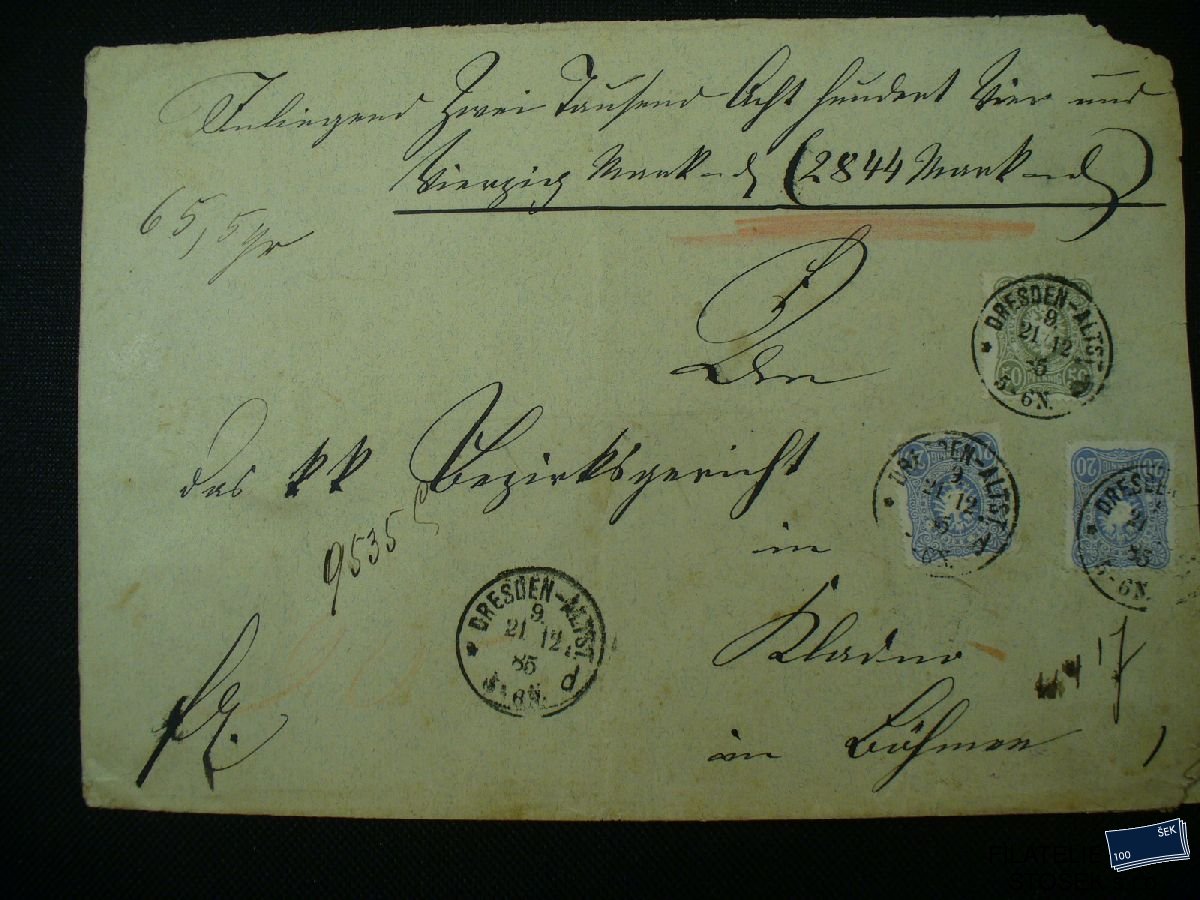 Inliegend Zwei Tausend Acht hundert Vier und
Vierzig Mark (2844 Mark
65,5 gr
An
das kk Bezirksgericht
9535
in
Kladno
in Böhmen
fr.
DRESDEN-ALTST.
9
21 12
85
5-6N.
50 50
PFENNIG
DRESDEN-ALTST.
9
21 12
20
DRESDEN
20 20
5-6N.
DRESDEN-ALTST.
9.
21 12.
85
5-6N.
d
100 ŠEK